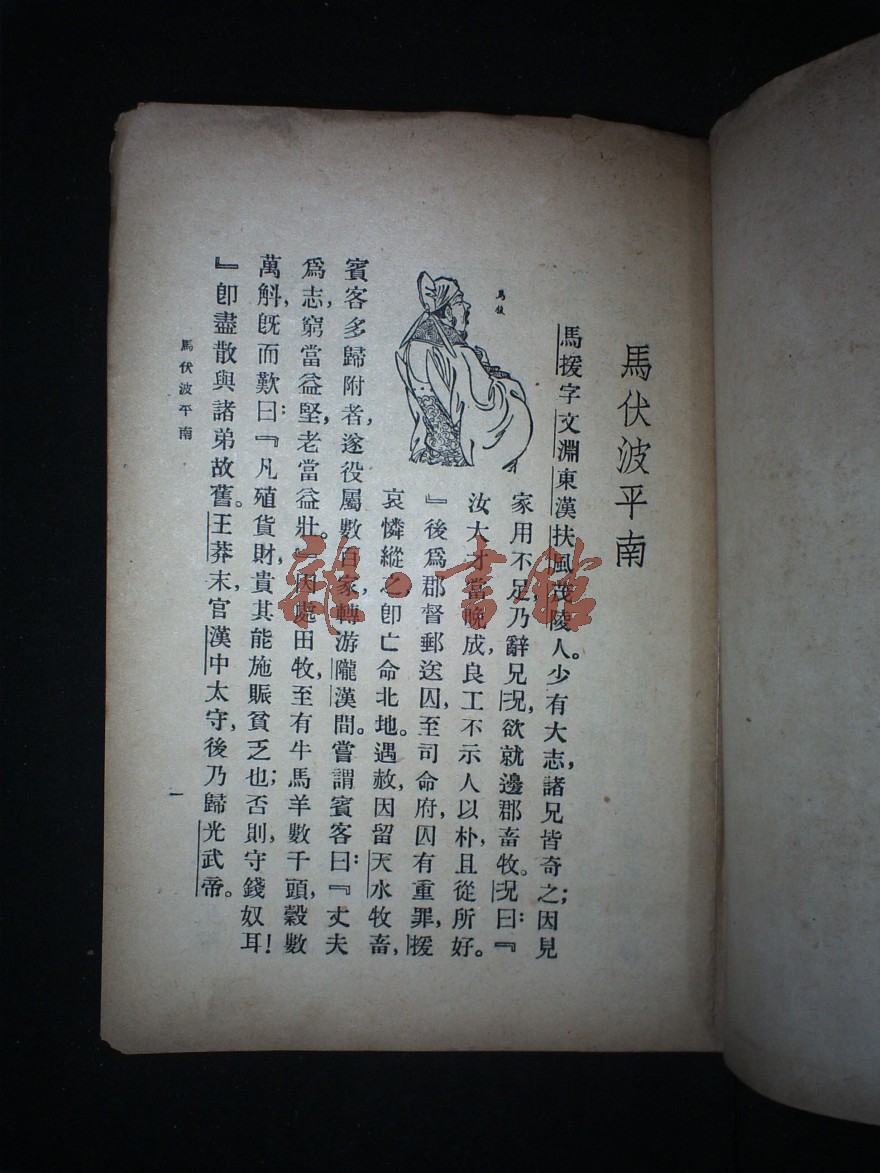 馬伏波平南
馬援字文淵東漢扶風茂陵人。少有大志，諸兄皆奇之；因見
家用不足，乃辭兄況，欲就邊郡畜牧。況曰：『
汝大才當晚成，良工不示人以朴，且從所好。
』後爲郡督郵送囚，至司命府，囚有重罪，援
哀憐縱之，卽亡命北地。遇赦，因留天水牧畜，
賓客多歸附者，遂役屬數百家，轉游隴漢間。嘗謂賓客曰：『丈夫
爲志，窮當益堅，老當益壯。』因處田牧，至有牛馬羊數千頭，穀數
萬斛，旣而歎曰：『凡殖貨財，貴其能施賑貧乏也；否則，守錢奴耳！
』卽盡散與諸弟故舊。王莽末，官漢中太守，後乃歸光武帝。
馬援
馬伏波平南
一
雜·書館